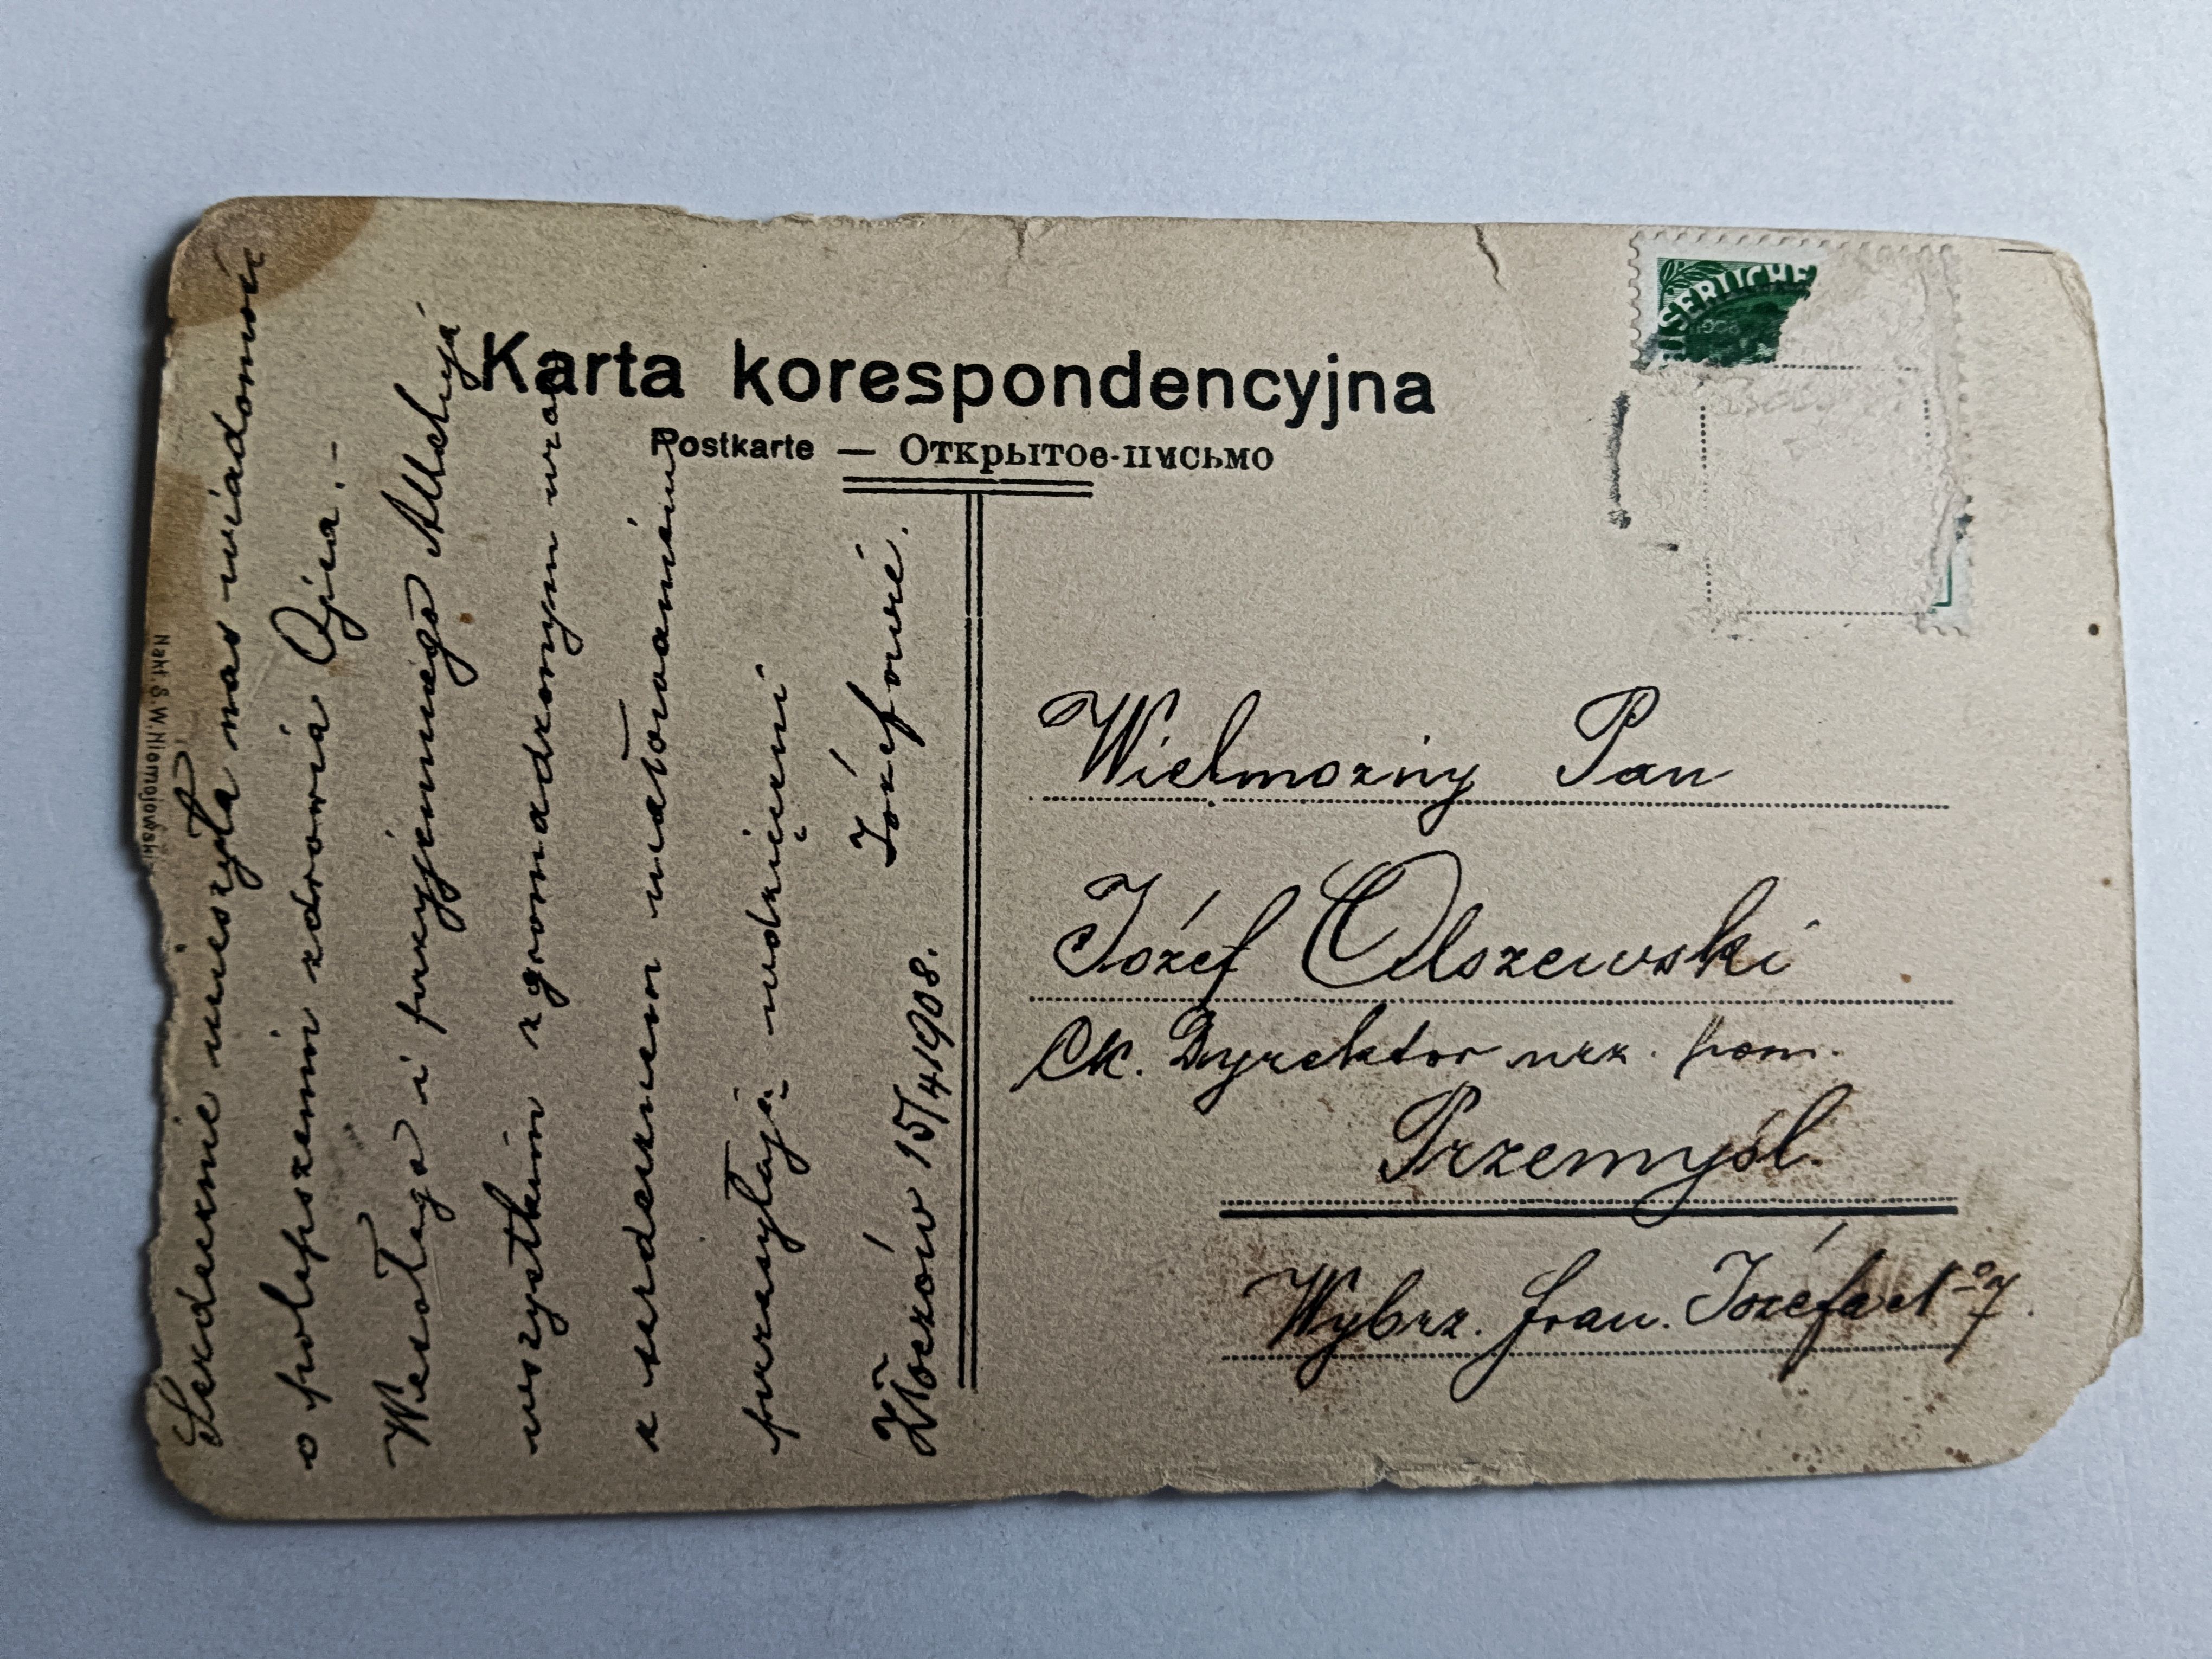 Karta korespondencyjna
Postkarte — Открытое-письмо
SERLICHE
1908
Serdecznie ucieszyła nas wiadomość
o polepszeniu zdrowia Ojca. –
Wesołego i przyjemnego Alleluja
wszystkim zgromadzonym wraz
z serdecznem ucałowaniem
przesyłają wdzięczni
Józefowie.
Złoczów 15/4 1908.
Nakł. S. W. Niemojowski
Wielmożny Pan
Józef Olszewski
Ck. Dyrektor urz. pom.
Przemyśl.
Wybrz. Fran. Józefa No 7.